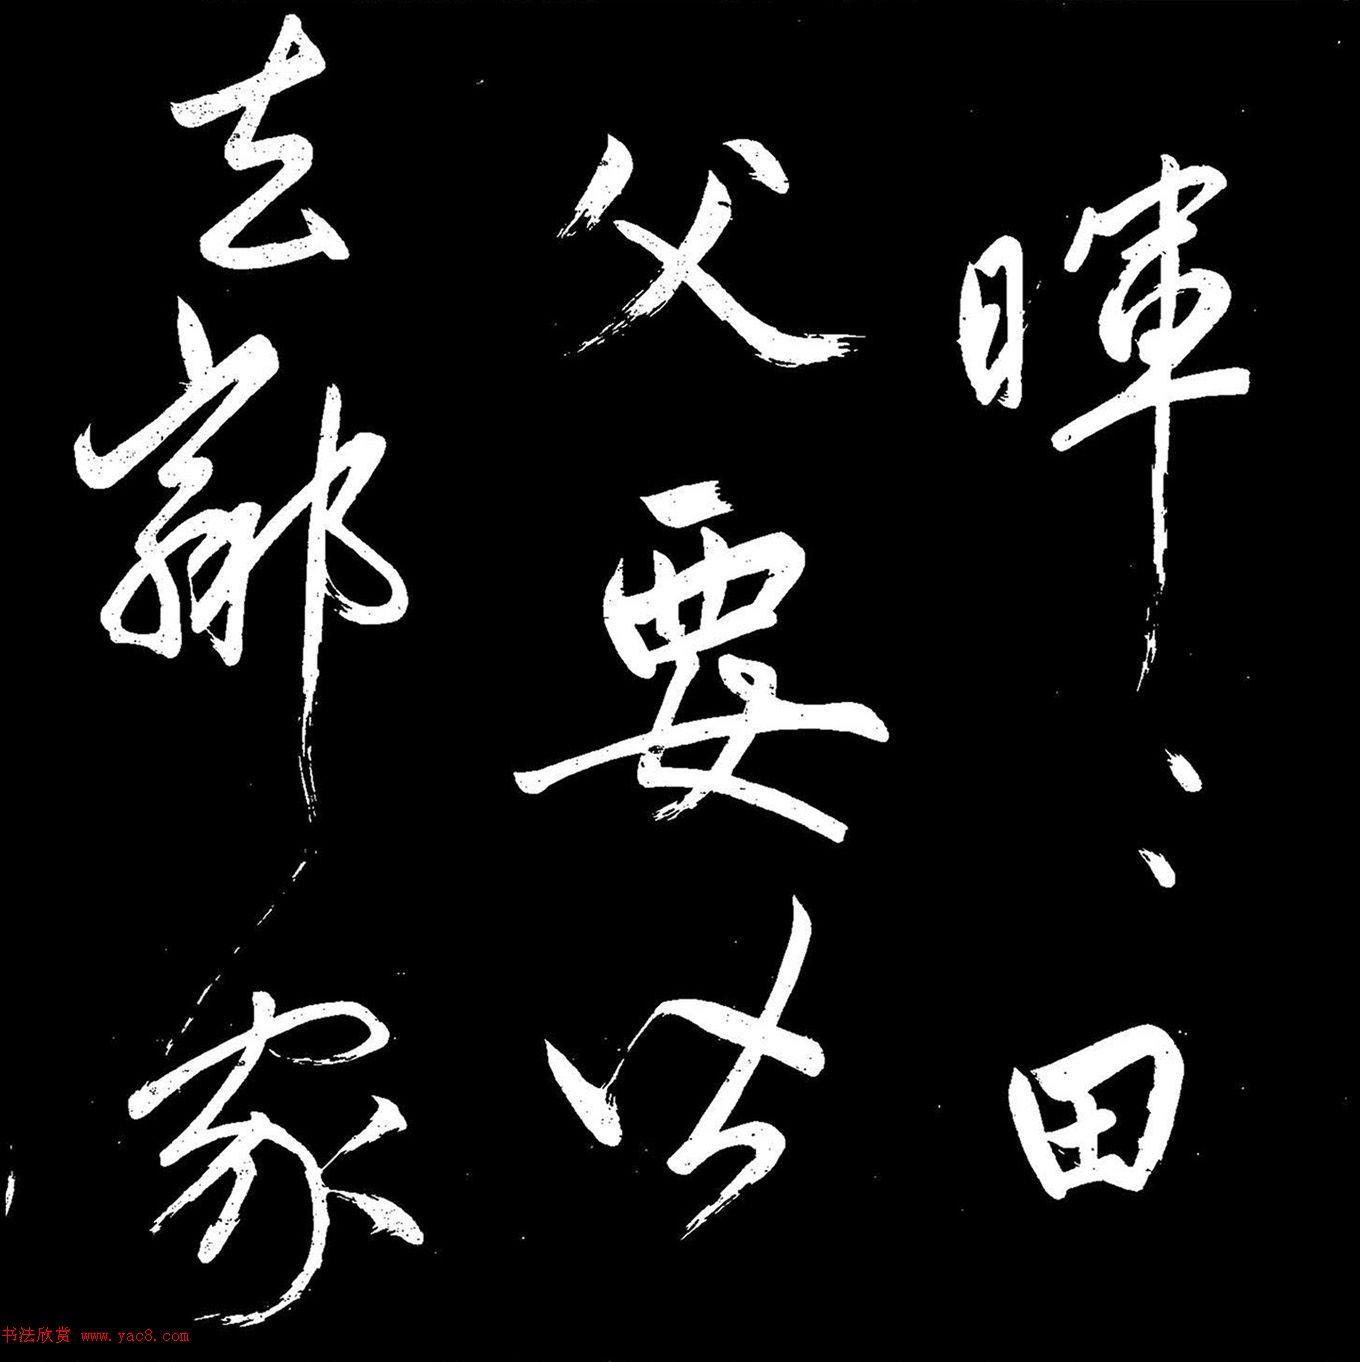 暉〻田
父要皆
去鄰家
书法欣赏 www.yac8.com